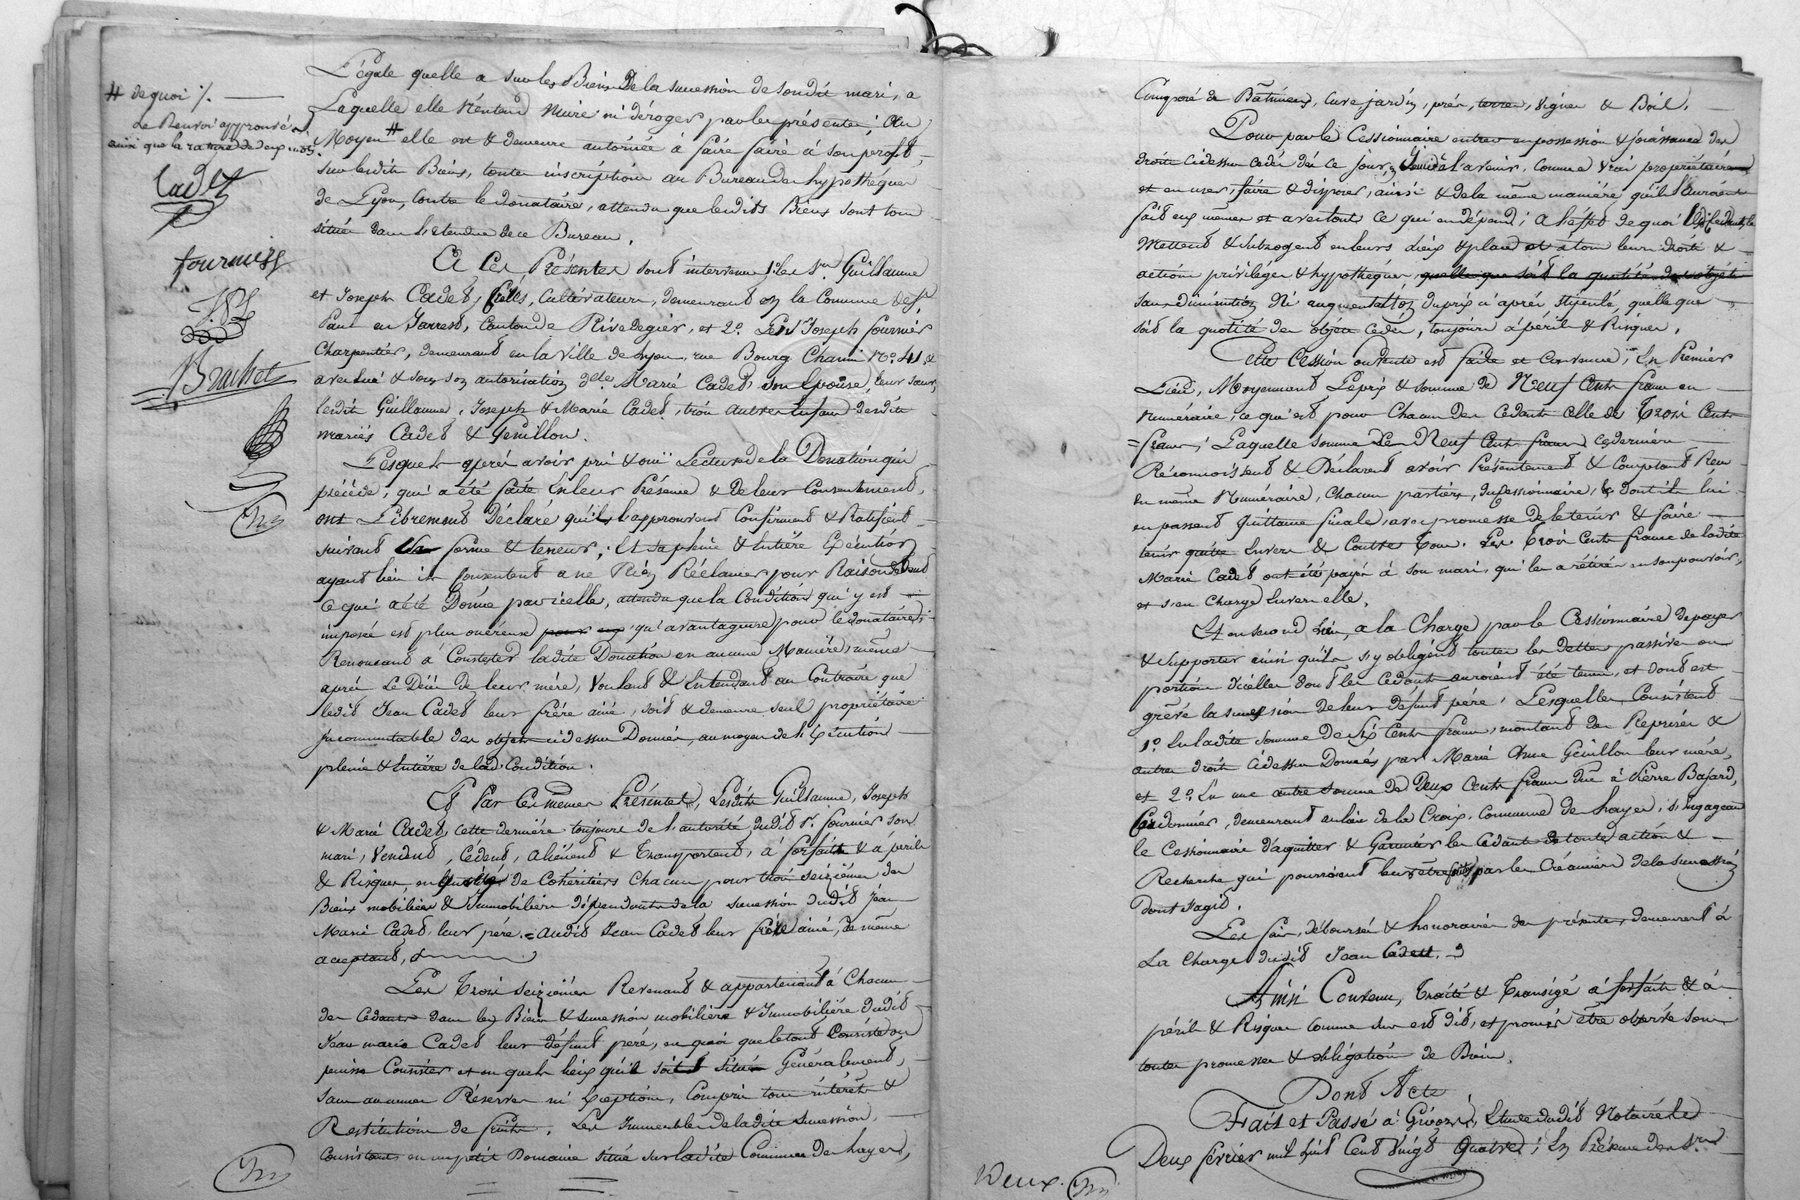 # de quoi ./. —
Le Renvoi approuvé
ainsi que la rature de deux mots.
Cadet
fournier
Brachet
L'égale quelle a sur les Biens De la succession de sondit mari, a
Laquelle elle n'entend Nuire ni déroger par les présentes; Au
Moyen # elle est & demeure autorisée à faire faire à son profit,
sur lesdits Biens, toutes inscriptions au Bureau des hypothéques
de Lyon, contre le donataire, attendu que lesdits Biens sont tous
situés dans l'étendue de ce Bureau.
Et Ces Présentes sont intervenus 1°. les Srs. Guillaume
et Joseph Cadet, fils, Cultivateurs, demeurant en la Commune de St.
Paul en Jarrest, Canton de Rivedegier, et 2°. Le Sr. Joseph fournier
Charpentier, demeurant en la Ville de Lyon, rue Bourg Chanin N°. 41 &
avec lui & sous son autorisation de. Marie Cadet, son Epouse, leur sœur,
lesdits Guillaume, Joseph & Marie Cadet, trois autres Enfans desdits
mariés Cadet & Genillon.
Lesquels après avoir pris & ouï Lecture de la Donation qui
précède, qui a été faite En leur Présence & De leur Consentement,
ont Librement Déclaré qu'ils l'approuvent Confirment & Ratifient
suivant sa forme & teneur; Et sa pleine & Entière Exécution
ayant lieu ils Consentent a ne Rien Réclamer pour Raison de tout
Ce qui a été Donné par icelle, attendu que la Condition qui y est
imposée est plus onéreuse qu'avantageuse pour le donataire;
Renoncant à Contester ladite Donation en aucune Manière, même
après Le Décès de leur mère, Voulant & Entendant au Contraire que
ledit Jean Cadet leur frère ainé, soit & demeure seul propriétaire
incommutable des objets cidessus Donnés, au moyen de l'Exécution
pleine & Entière de lad. Condition.
Et Par Ces mêmes Présentes, Lesdits Guillaume, Joseph
& Marie Cadet, cette dernière toujours de l'autorité dudit Sr. fournier son
mari, Vendent, Cédent, aliénent & Transportent, à forfait & à périls
& Risques, en qualité de Cohéritiers Chacun pour trois seizièmes des
Biens mobiliers & Immobiliers dépendants de la succession dudit Jean
Marie Cadet leur père. = audit Jean Cadet leur frère ainé, de même
acceptant,
Les Trois seizièmes Revenant & appartenant à Chacun
des Cedants dans les Biens & succession mobilière & Immobilière dudit
Jean marie Cadet leur défunt père, en quoi que le tout Consiste ou
puisse Consister et en quels lieux qu'il soit situé Généralement,
sans aucunes Réserves ni Exceptions, Compris tous intérêts &
Restitutions de fruits. Les Immeubles de ladite succession,
Consistant en un petit Domaine situé sur ladite Commune de hayes,
Composé de Bâtimens, Cure jardin, prés, terres, Vignes & Bois.
Pour par le Cessionnaire entrer en possession & jouissance des
droits cidessus cedés dès ce jour, & ainsi à l'avenir, comme vrai propriétaire
et en user, faire & disposer, ainsi & de la même manière qu'ils l'auroient
fait eux mêmes et avec tout ce qui en dépend; A l'effet de quoi lesd. Cedants le
Mettent & Subrogent en leurs Lieux & place et à tous leurs droits &
actions privilèges & hypothèques, quelle que soit la quotité des objets
sans diminution Ni augmentation du prix ci après stipulé, quelle que
soit la quotité des objets cedés, toujours à périls & Risques.
Cette Cession ou Vente est faite et Convenue; En Premier
Lieu, Moyennant Le prix & somme de Neuf Cents francs en
Numéraire; ce qui est pour Chacun des Cedants celle de Trois Cents
= francs; Laquelle somme de Neuf Cents francs cesderniers
Réconnoissent & Déclarent avoir Présentement & Comptant Reçu
en même Numéraire, Chacun partiers, du Cessionnaire, & dont ils lui
en passent Quittance finale, avec promesse de le tenir & faire
tenir quitte Envers & Contre Tous. Les Trois Cents francs de ladite
Marie Cadet ont été payés à son mari, qui les a rétirés en son pouvoir,
et s'en charge Envers elle.
Et en second Lieu, a la Charge par le Cessionnaire de payer
& supporter ainsi qu'il s'y obligent toutes les dettes passives ou
portion d'icelles dont les Cedants auroient été tenus, et dont est
grévé la succession de leur défunt père, Lesquelles Consistent
1°. En ladite somme de Six Cents francs, montant des Reprises &
autres droits cidessus Donnés par Marie Anne Genillon leur mère,
et 2°. En une autre somme de Deux Cents francs due à Pierre Basard,
Cordonnier, demeurant au lieu de la Croix, Commune de hayes; s'engageant
le Cessionnaire d'aquitter & Garantir les Cedants de toutes actions &
Recherches qui pourroient leur être faites par les Créanciers de la succession
dont s'agit.
Les frais, déboursés & honoraires des présentes, demeurent à
La Charge dudit Jean Cadet.
Ainsi Convenu, Traité & Transigé à forfait & à
péril & Risques Comme sus est dit, et promis être observé sous
toutes promesses & obligations de Droit.
Dont Acte
Fait et Passé à Givors, Etude dudit Notaire le
Deux février mil huit Cent Vingt Quatre; En Présence des Srs.
Deux.